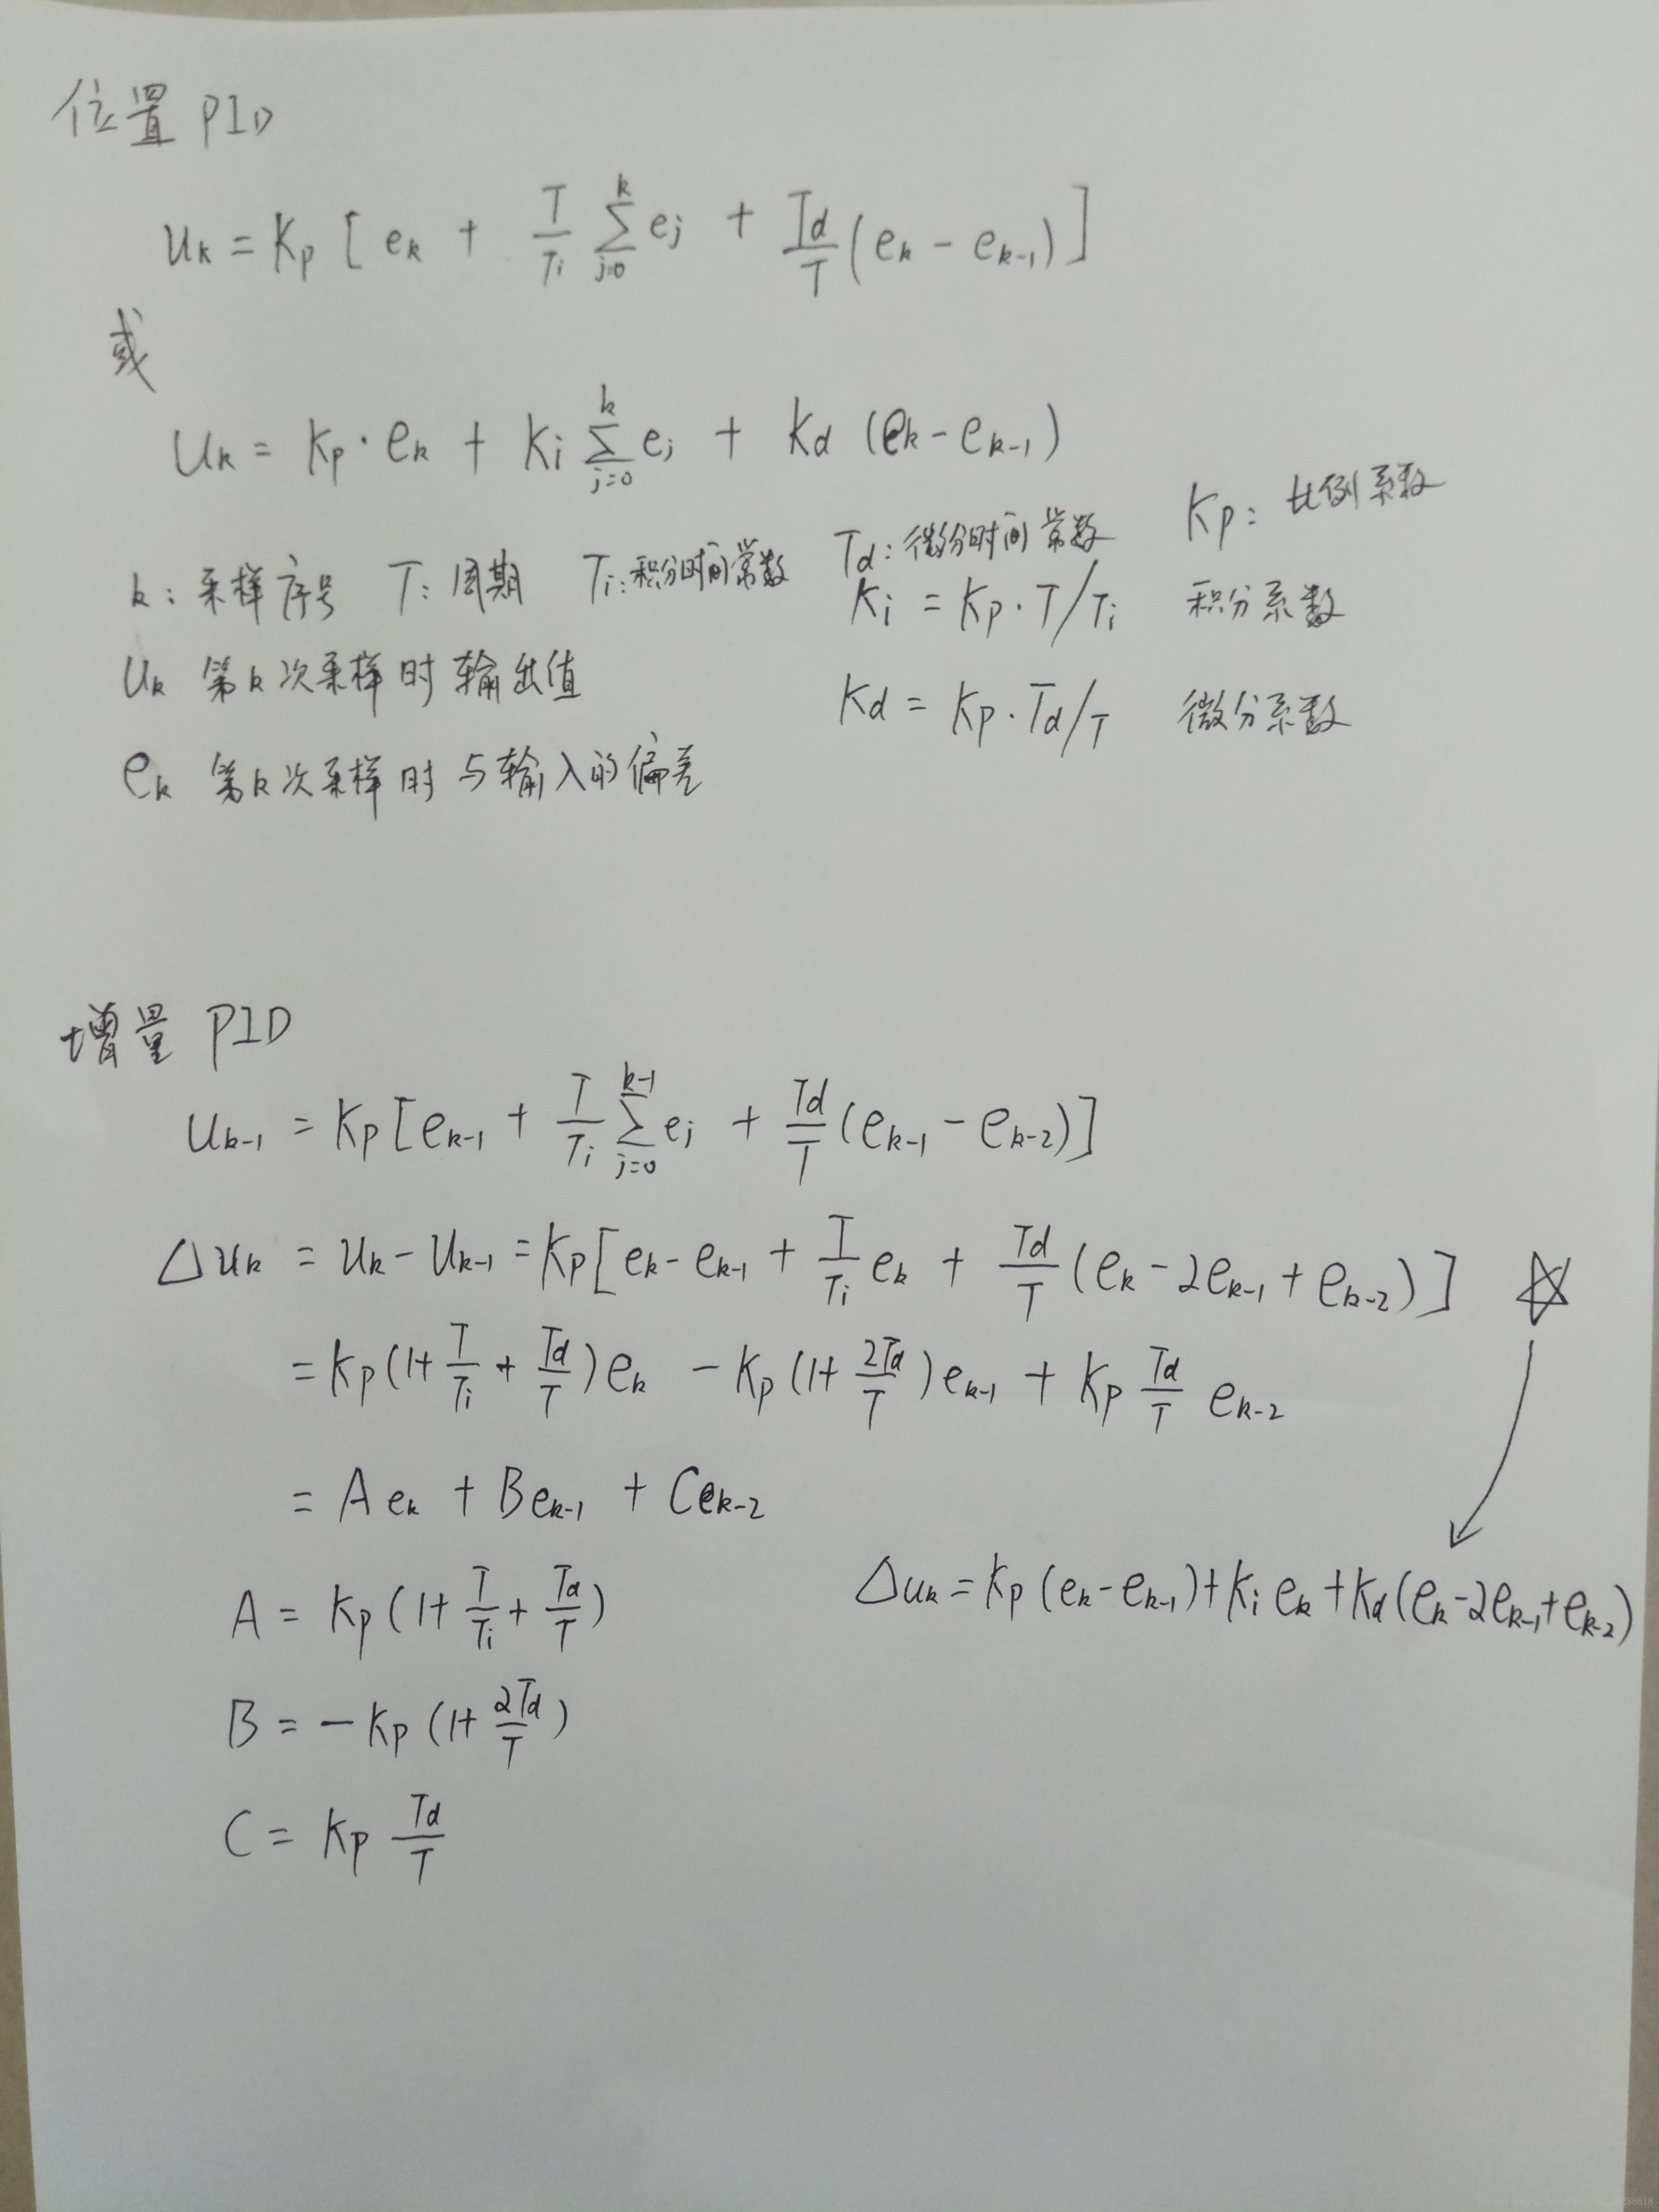 位置 PID
u_k = Kp [ e_k + T/Ti ∑_{j=0}^{k} e_j + Td/T (e_k - e_{k-1}) ]
或
u_k = Kp · e_k + Ki ∑_{j=0}^{k} e_j + Kd (e_k - e_{k-1})
k: 采样序号 T: 周期 Ti: 积分时间常数 Td: 微分时间常数 Kp: 比例系数
Ki = Kp · T/Ti 积分系数
u_k 第k次采样时输出值
Kd = Kp · Td/T 微分系数
e_k 第k次采样时与输入的偏差
增量 PID
u_{k-1} = Kp [ e_{k-1} + T/Ti ∑_{j=0}^{k-1} e_j + Td/T (e_{k-1} - e_{k-2}) ]
Δu_k = u_k - u_{k-1} = Kp [ e_k - e_{k-1} + T/Ti e_k + Td/T (e_k - 2e_{k-1} + e_{k-2}) ] ☆
= Kp (1 + T/Ti + Td/T) e_k - Kp (1 + 2Td/T) e_{k-1} + Kp Td/T e_{k-2}
= A e_k + B e_{k-1} + C e_{k-2}
Δu_k = Kp (e_k - e_{k-1}) + Ki e_k + Kd (e_k - 2e_{k-1} + e_{k-2})
A = Kp (1 + T/Ti + Td/T)
B = - Kp (1 + 2Td/T)
C = Kp Td/T